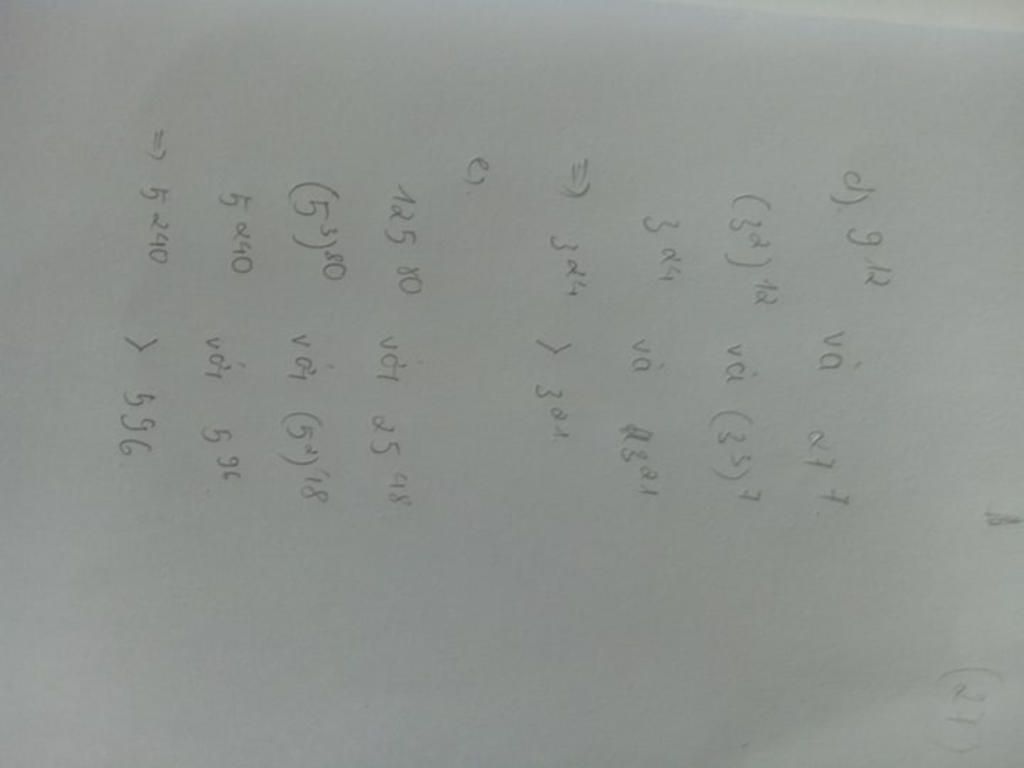 (27)
d) 9^12 và 27^7
(3^2)^12 và (3^3)^7
3^24 và 3^21
=> 3^24 > 3^21
e)
125^80 với 25^48
(5^3)^80 với (5^2)^48
5^240 với 5^96
=> 5^240 > 5^96.